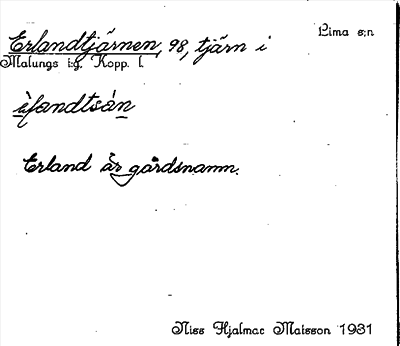 Lima s:n
Erlandtjärnen, 98, tjärn i
Malungs i:g, Kopp. l.
Erland är gårdsnamn.
Niss Hjalmar Matsson 1931